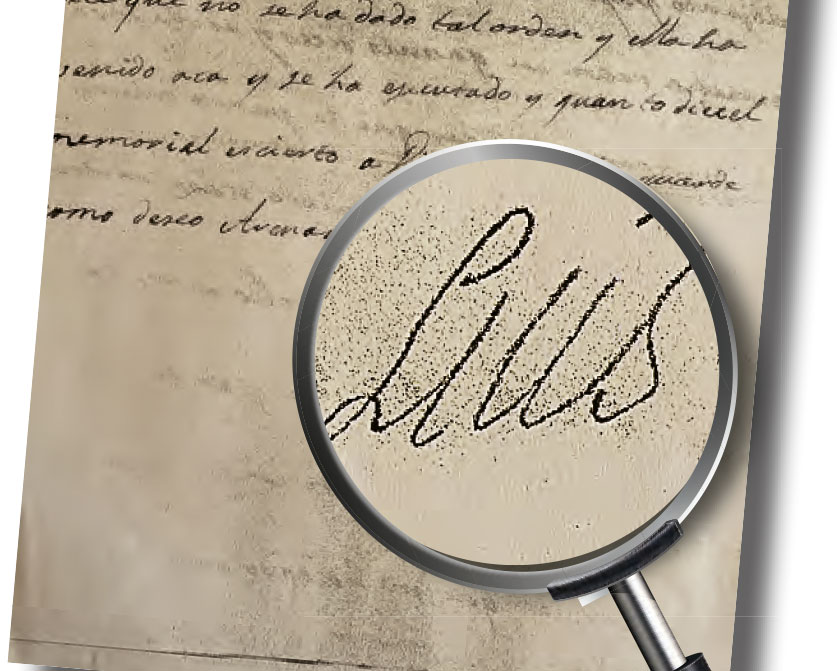 que no se ha dado tal orden y
venido aca y se ha executado y quanto dice el
memorial es cierto a guarde
como deseo
Luis